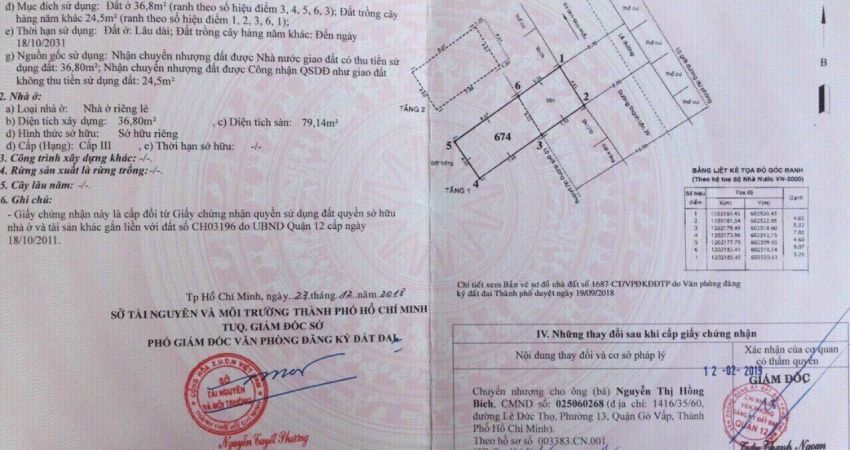 đ) Mục đích sử dụng: Đất ở 36,8m² (ranh theo số hiệu điểm 3, 4, 5, 6, 3); Đất trồng cây
hàng năm khác 24,5m² (ranh theo số hiệu điểm 1, 2, 3, 6, 1);
e) Thời hạn sử dụng: Đất ở: Lâu dài; Đất trồng cây hàng năm khác: Đến ngày
18/10/2031
g) Nguồn gốc sử dụng: Nhận chuyển nhượng đất được Nhà nước giao đất có thu tiền sử
dụng đất: 36,80m²; Nhận chuyển nhượng đất được Công nhận QSDĐ như giao đất
không thu tiền sử dụng đất: 24,5m²
2. Nhà ở:
a) Loại nhà ở: Nhà ở riêng lẻ
b) Diện tích xây dựng: 36,80m² , c) Diện tích sàn: 79,14m²
d) Hình thức sở hữu: Sở hữu riêng
đ) Cấp (Hạng): Cấp III , e) Thời hạn sở hữu: -/-
3. Công trình xây dựng khác: -/-.
4. Rừng sản xuất là rừng trồng:-/-.
5. Cây lâu năm: -/-.
6. Ghi chú:
- Giấy chứng nhận này là cấp đổi từ Giấy chứng nhận quyền sử dụng đất quyền sở hữu
nhà ở và tài sản khác gắn liền với đất số CH03196 do UBND Quận 12 cấp ngày
18/10/2011.
Tp Hồ Chí Minh, ngày..27.tháng..12..năm..2018
SỞ TÀI NGUYÊN VÀ MÔI TRƯỜNG THÀNH PHỐ HỒ CHÍ MINH
TUQ. GIÁM ĐỐC SỞ
PHÓ GIÁM ĐỐC VĂN PHÒNG ĐĂNG KÝ ĐẤT ĐAI
CỘNG HÒA X.H.C.N VIỆT NAM
SỞ
TÀI NGUYÊN
VÀ MÔI TRƯỜNG
THÀNH PHỐ HỒ CHÍ MINH
Nguyễn Tuyết Phương
B
THỔ CƯ
THỔ CƯ
Lề đường
Lộ giới đường dự phóng
1
6
Sân
2
TẦNG 2
674
5
3
4
TẦNG 1
Đất trống
Lộ giới đường dự phóng
BẢNG LIỆT KÊ TỌA ĐỘ GÓC RANH
(Theo hệ toạ độ Nhà Nước VN-2000)
Số hiệu điểm
Tọa độ
Cạnh
X(m) Y(m)
1
2
3
4
5
6
1
Chi tiết xem Bản vẽ sơ đồ nhà đất số 1687-CT/VPĐKĐĐTP do Văn phòng đăng
ký đất đai Thành phố duyệt ngày 19/09/2018
IV. Những thay đổi sau khi cấp giấy chứng nhận
Nội dung thay đổi và cơ sở pháp lý
Xác nhận của cơ quan
có thẩm quyền
12-02-2019
GIÁM ĐỐC
Chuyển nhượng cho ông (bà) Nguyễn Thị Hồng
Bích, CMND số: 025060268 (địa chỉ: 1416/35/60,
đường Lê Đức Thọ, Phường 13, Quận Gò Vấp, Thành
Phố Hồ Chí Minh).
Theo hồ sơ số 003383.CN.001
CHI NHÁNH
VĂN PHÒNG
ĐĂNG KÝ ĐẤT ĐAI
QUẬN 12
Trần Thanh Ngoan